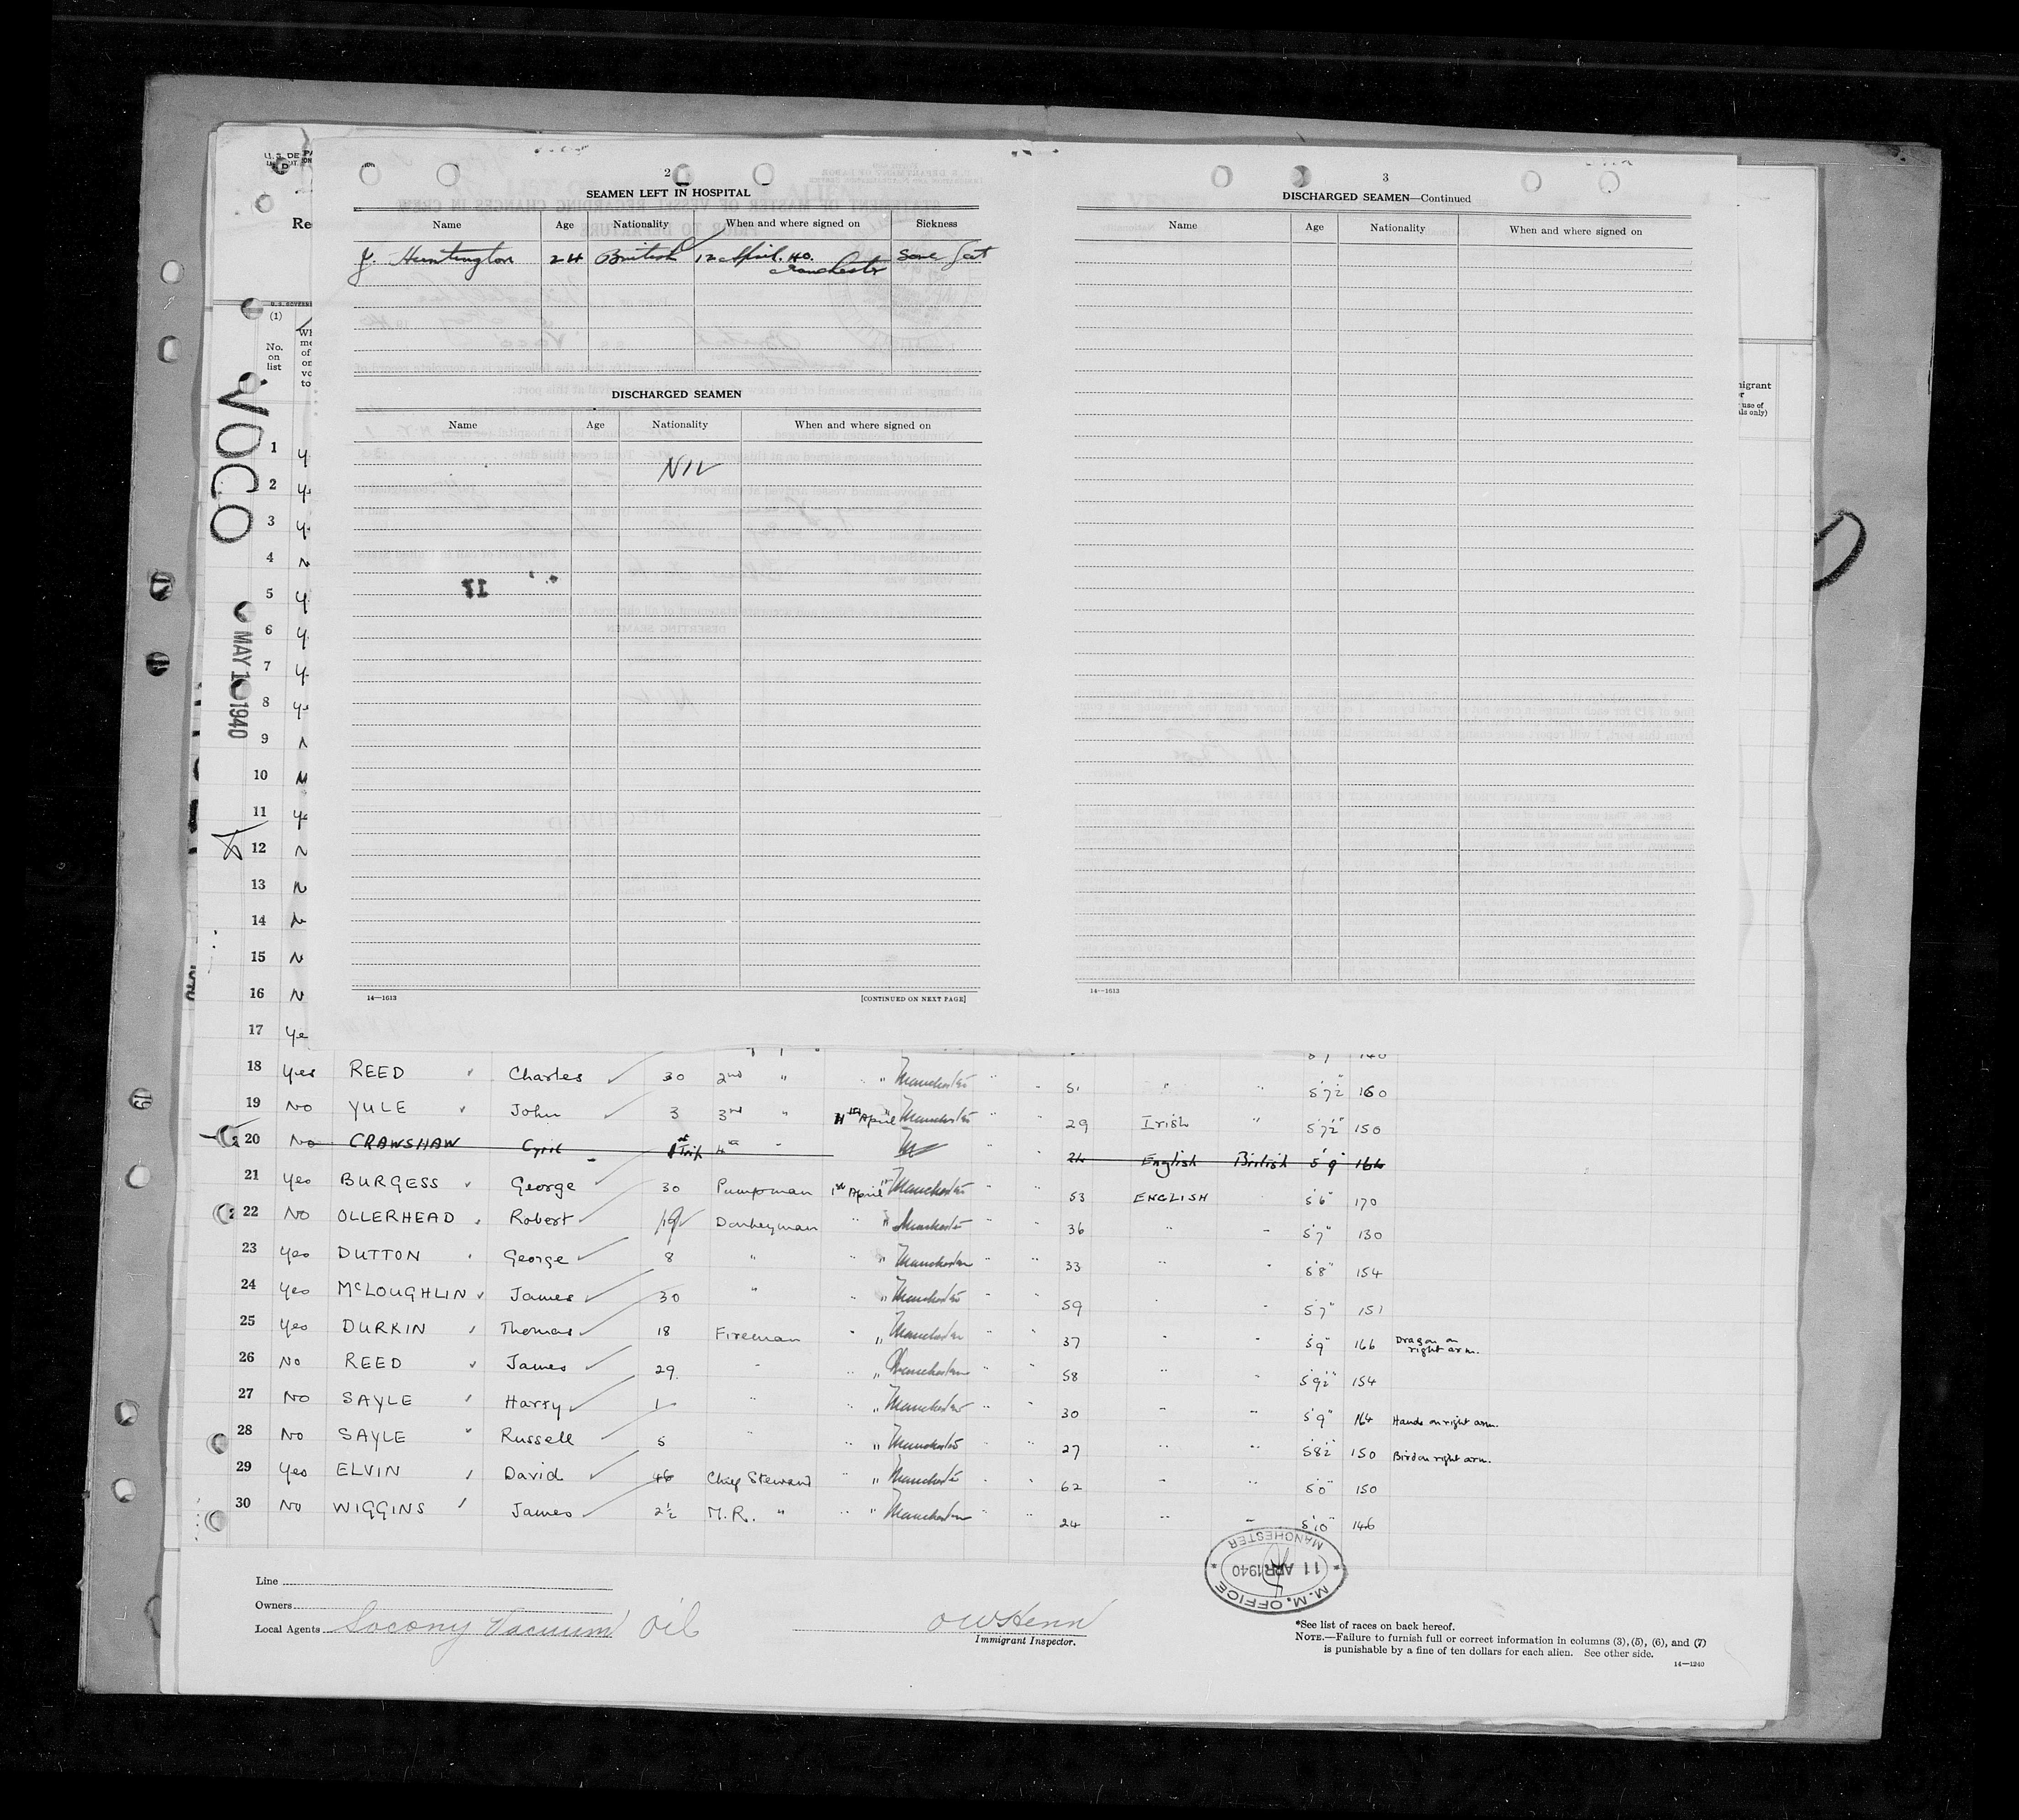 2
SEAMEN LEFT IN HOSPITAL
Name Age Nationality When and where signed on Sickness
J. Huntington 24 British 12 April. 40. Manchester Sore
DISCHARGED SEAMEN
Name Age Nationality When and where signed on
NIL
14—1613 [CONTINUED ON NEXT PAGE]
3
DISCHARGED SEAMEN—Continued
Name Age Nationality When and where signed on
14—1613
U. S. DE
Re
(1)
No. on list
VOCO
MAY 1 1940
1 y
2 ye
3 y
4 N
5 y
6 y
7 y
8 ye
9 N
10 N
11 ye
12 N
13 N
14 N
15 N
16 N
17 ye
18 Yes REED Charles 30 2nd " " Manchester " " 51 " " 5'7½" 160
19 No YULE John 3 3rd " 11th April " Manchester " " 29 Irish " 5'7½" 150
20 No CRAWSHAW Cyril 1st Trip 4th " M " 24 English British 5'9" 164
21 Yes BURGESS George 30 Pumpman 1st April " Manchester " " 53 ENGLISH " 5'6" 170
22 No OLLERHEAD Robert 19 Donkeyman " " Manchester " " 36 " " 5'7" 130
23 Yes DUTTON George 8 " " " Manchester " " 33 " " 5'8" 154
24 Yes McLOUGHLIN James 30 " " " Manchester " " 59 " " 5'7" 151
25 Yes DURKIN Thomas 18 Fireman " " Manchester " " 37 " " 5'9" 166 Dragon on right arm.
26 No REED James 29. " " " Manchester " " 58 " " 5'9½" 154
27 No SAYLE Harry 1 " " " Manchester " " 30 " " 5'9" 164 Hands on right arm.
28 No SAYLE Russell 5 " " " Manchester " " 27 " " 5'8½" 150 Bird on right arm.
29 Yes ELVIN David 46 Chief Steward " " Manchester " " 62 " " 5'0" 150
30 No WIGGINS James 2½ M.R. " " " Manchester " " 24 " " 5'10" 146
M. M. OFFICE
11 APR 1940
MANCHESTER
Line
Owners
Local Agents Socony Vacuum Oil
O W Henn
Immigrant Inspector.
*See list of races on back hereof.
NOTE.—Failure to furnish full or correct information in columns (3), (5), (6), and (7)
is punishable by a fine of ten dollars for each alien. See other side.
14—1240